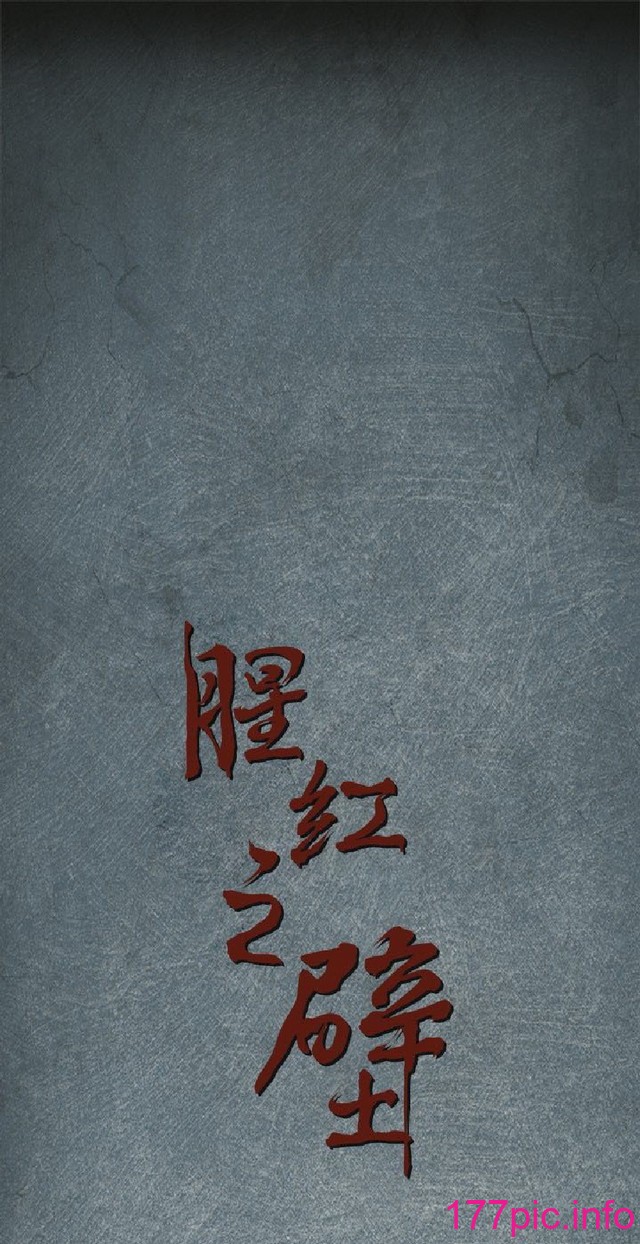 腥紅之壁
177pic.info